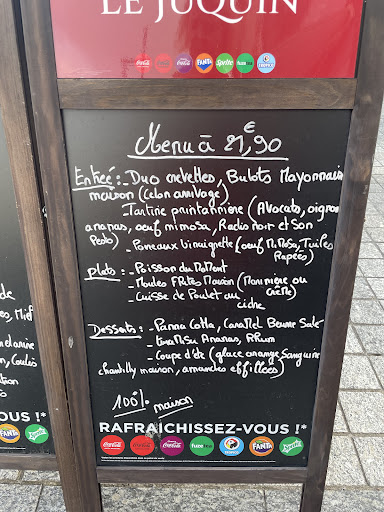 LE JUQUIN
Menu à 21,90€
Entrée: - Duo crevettes, Bulots Mayonnaise
maison (selon arrivage)
- Tartine printannière (Avocats, oignon
ananas, oeuf mimosa, Radis noir et Son
Pesto)
- Poireaux vinaigrette (oeuf Mimosa, Tuiles
Rapées)
plats: - Poisson du Moment
- Moules Frites Maison (Marinière ou
Crème)
- Cuisse de Poulet au
cidre
Desserts: - Panna Cotta, Caramel Beurre Salé
- Ananas, Rhum
- Coupe d'été (glace orange Sanguine
chantilly maison, amandes effilées)
100% maison
RAFRAICHISSEZ-VOUS !*
Coca-Cola Coca-Cola Coca-Cola fuzetea TROPICO FANTA Sprite
OUS !*
FANTA Sprite